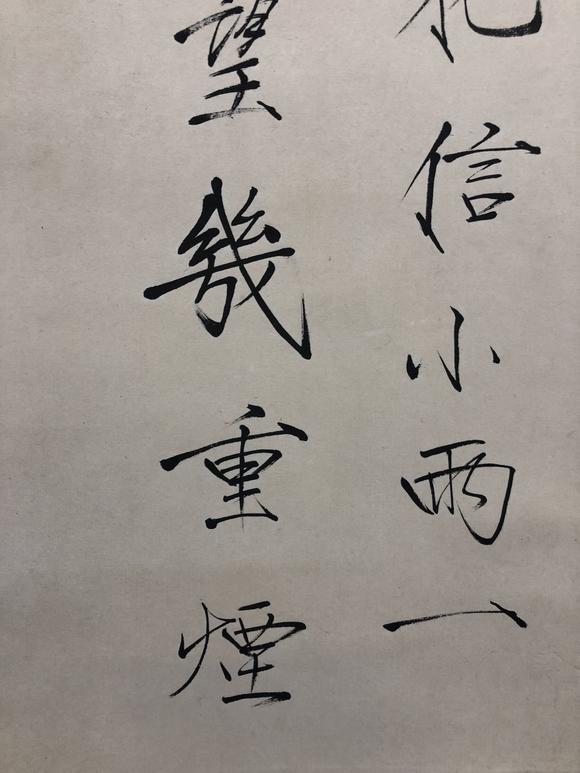 信小雨一
望幾重煙